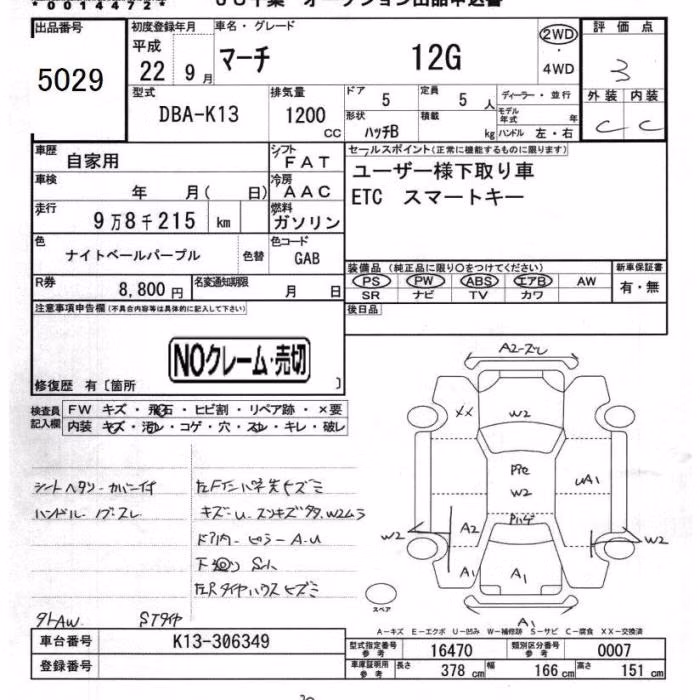 *00144772*
出品番号
5029
初度登録年月
平成
22 9月
車名・グレード
マーチ 12G
2WD
4WD
評価点
3
外装 内装
C C
型式
DBA-K13
排気量
1200
CC
ドア
5
定員
5人
ディーラー・並行
モデル年式 年
形状
ハッチB
積載
kg
ハンドル 左・右
車歴
自家用
シフト
FAT
車検
年 月( 日)
冷房
AAC
走行
9万8千215 km
燃料
ガソリン
色
ナイトベールパープル
色替
色コード
GAB
R券
8,800円
名変通知期限
月 日
セールスポイント(正常に機能するものに限ります)
ユーザー様下取り車
ETC スマートキー
装備品(純正品に限り○をつけてください)
PS PW ABS エアB AW
SR ナビ TV カワ
新車保証書
有・無
後日品
注意事項申告欄(不具合内容等は具体的に記入して下さい)
NOクレーム・売切
修復歴 有〔箇所 〕
検査員記入欄
FW キズ・飛石・ヒビ割・リペア跡・×要
内装 キズ・汚レ・コゲ・穴・スレ・キレ・破レ
シートヘタリ・カバー付
ハンドル・ノブスレ
キズ・U・スンキズ多々.W2ムラ
ドア内・ピラーA.U
下廻り Sh
左Rタイヤハウスヒズミ
外AW STタイヤ
A2-ズレ
XX
W2
Pﾘﾍﾟ
W2
UA1
W2
A2
A1
A1
W2
A1
スペア
A-キズ E-エクボ U-凹み W-補修跡 S-サビ C-腐食 XX-交換済
車台番号
K13-306349
登録番号
型式指定番号
参考
16470
類別区分番号
参考
0007
車庫証明用
参考
長さ
378 cm
幅
166 cm
高さ
151 cm